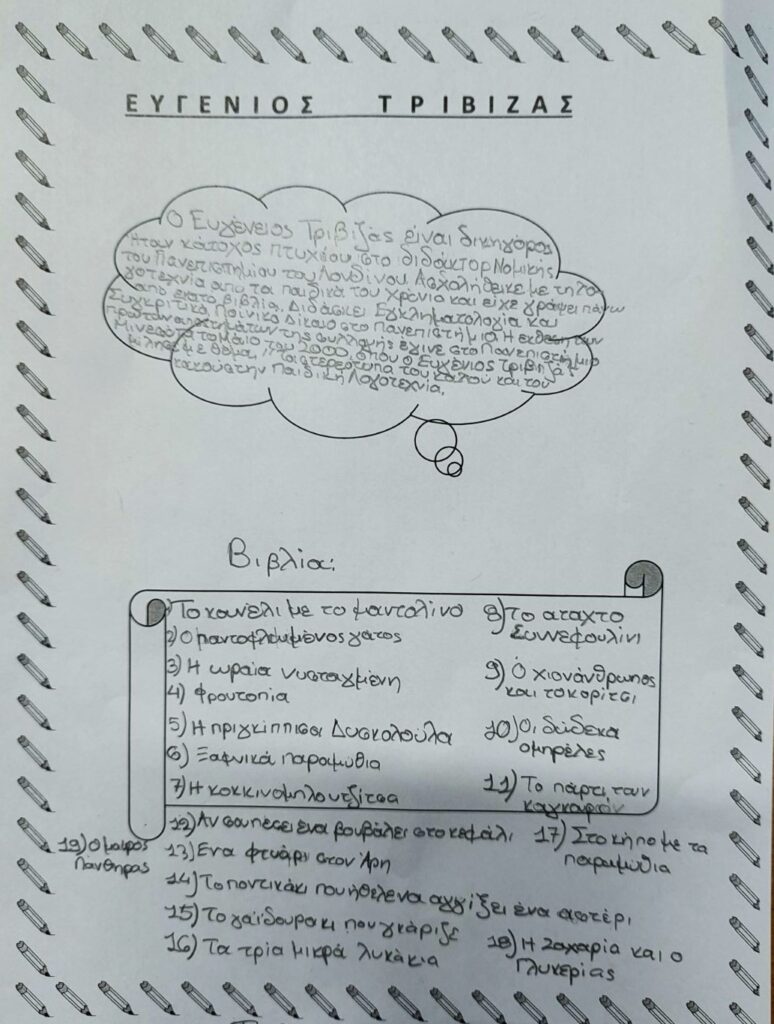 ΕΥΓΕΝΙΟΣ ΤΡΙΒΙΖΑΣ
Ο Ευγένειος Τριβιζάς είναι δικηγόρος
Ήταν κάτοχος πτυχέου στο διδάκτορ Νομικής
του Πανεπιστημίου του Λονδίνου. Ασχολήθεικε με τη λο
γοτεχνία από τα παιδικά του χρόνια και είχε γράψει πάνω
από εκατό βιβλία. Διδάσκει Εγκληματολογία και
Συγκριτικό Ποινικό Δίκαιο στο Πανεπιστήμιο. Η εκθεση των
πρωτων αγκτημάτων της συλλογής έγινε στο Πανεπιστήμιο
Μινεσότα το Μάιο του 2000, όπου ο Ευγένιος Τριβιζάς
μίλησε με θέμα, "Τα στερεότυπα του καλού και του
κακού στην Παιδική Λογοτεχνία.
Βιβλία:
1) Το κουνέλι με το μαντολίνο
2) Ο παντοφλωμένος γάτος
3) Η ωραία νυσταγμένη
4) Φρουτοπία
5) Η πριγκίππισα Δυσκολούλα
6) Ξαφνικά παραμύθια
7) Η κοκκινομηλουτζίτσα
8) Το αταχτο
Συννεφουλίνι
9) Ο χιονάνθρωπος
και το κορίτσι
10) Οι δώδεκα
ομπρέλες
11) Το πάρτι των
καγκουρών
12) Αν σου πέσει ένα βουβάλει στο κεφάλι
13) Ενα φτυάρι στον Άρη
14) Το ποντικάκι που ήθελε να αγγίξει ένα αστέρι
15) Το γαϊδουράκι που γκάριζε
16) Τα τρία μικρά λυκάκια
17) Στο κήπο με τα
παραμύθια
18) Η Ζαχαρία και ο
Γλυκερίας
19) Ο μαύρος
Πάνθηρας